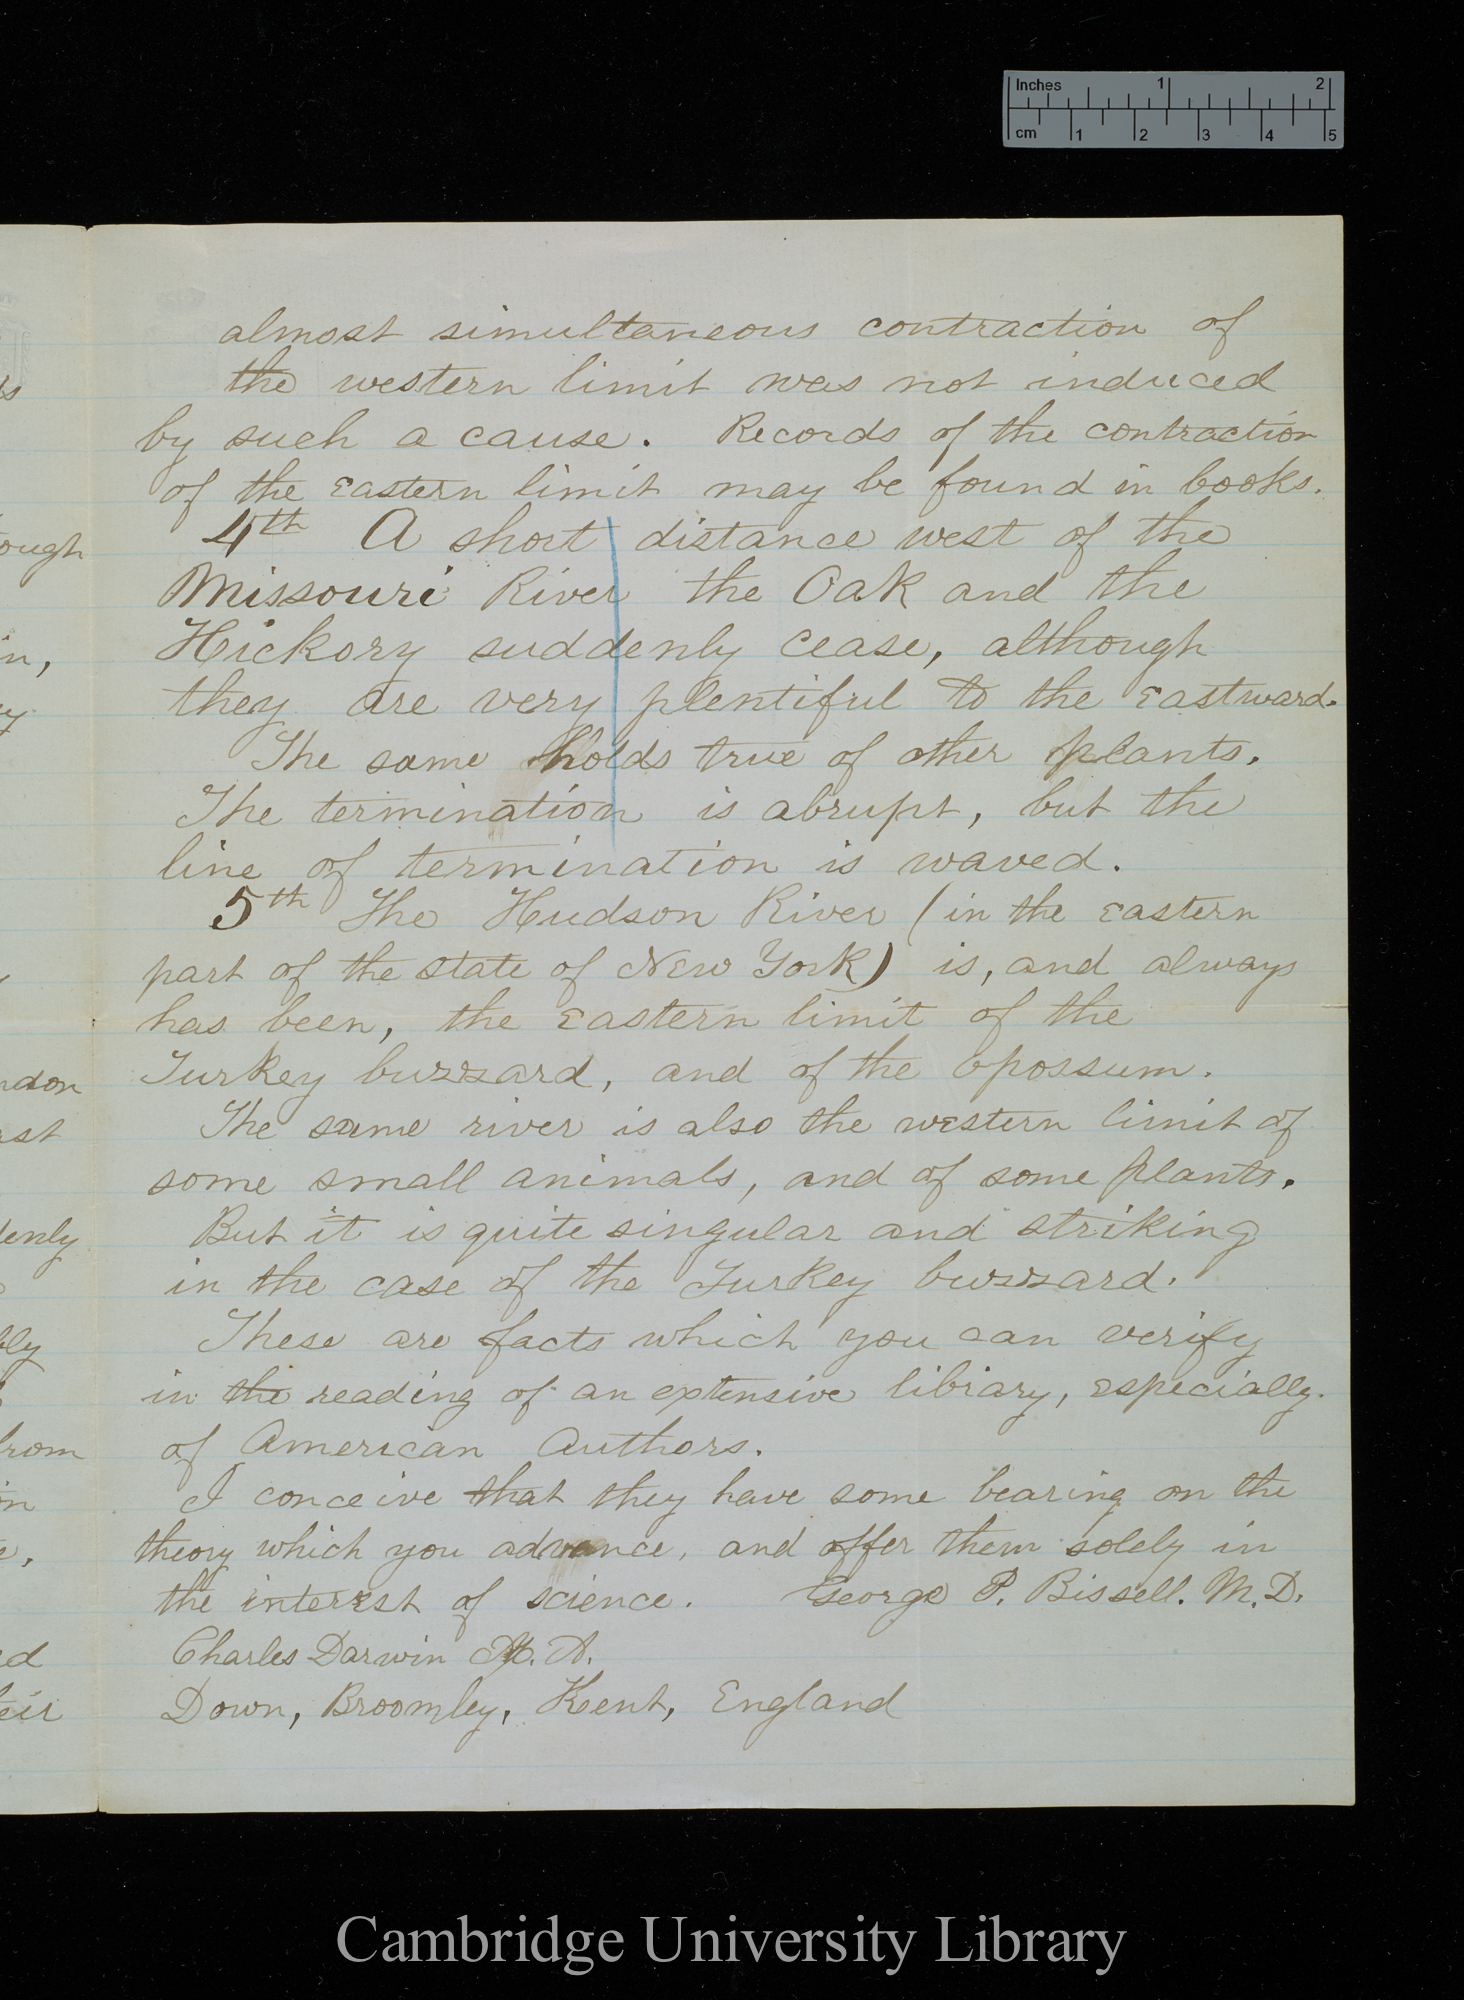 Inches 1 2
cm 1 2 3 4 5
almost simultaneous contraction of
the western limit was not induced
by such a cause. Records of the contraction
of the eastern limit may be found in books.
4th A short distance west of the
Missouri River the Oak and the
Hickory suddenly cease, although
they are very plentiful to the eastward.
The same holds true of other plants.
The termination is abrupt, but the
line of termination is waved.
5th The Hudson River (in the eastern
part of the state of New York) is, and always
has been, the eastern limit of the
Turkey buzzard, and of the opossum.
The same river is also the western limit of
some small animals, and of some plants.
But it is quite singular and striking
in the case of the Turkey buzzard.
These are facts which you can verify
in the reading of an extensive library, especially
of American Authors.
I conceive that they have some bearing on the
theory which you advance, and offer them solely in
the interest of science. George P. Bissell. M.D.
Charles Darwin M. A.
Down, Broomley, Kent, England
ough
in,
ndon
ast
denly
bly
from
on
ed
eir
Cambridge University Library